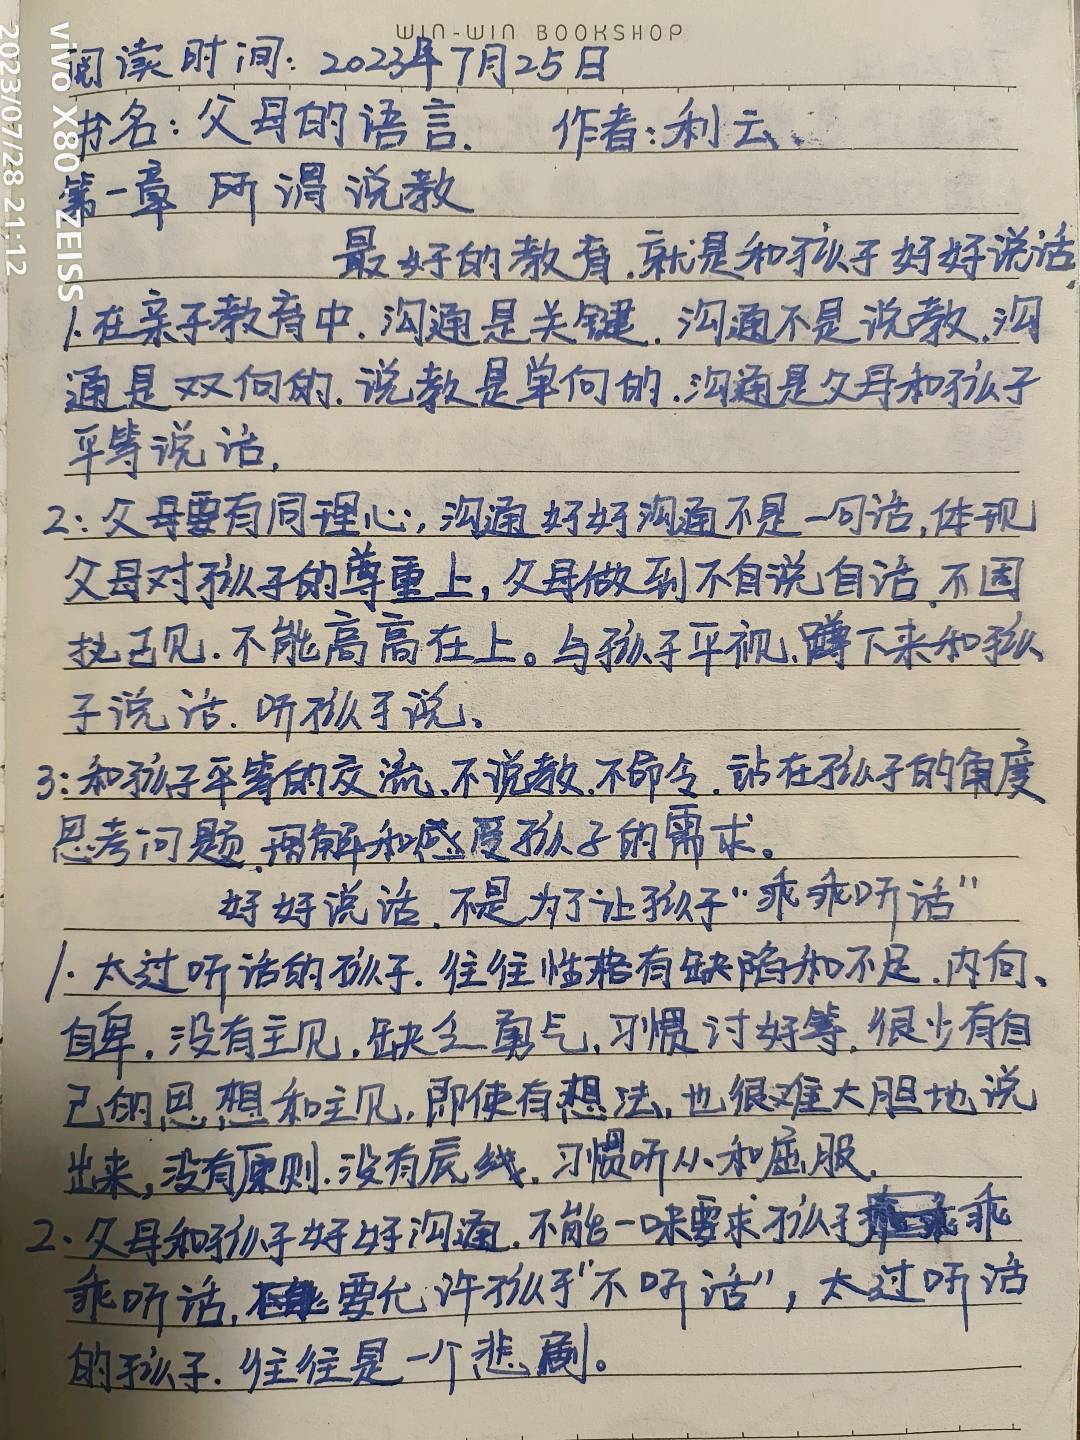 WIN-WIN BOOKSHOP
阅读时间：2023年7月25日
书名：父母的语言. 作者：利云、
第一章 所谓说教
最好的教育.就是和孩子好好说话.
1.在亲子教育中.沟通是关键.沟通不是说教.沟
通是双向的.说教是单向的.沟通是父母和孩子
平等说话.
2：父母要有同理心，沟通好好沟通不是一句话，体现
父母对孩子的尊重上，父母做到不自说自话.不固
执己见.不能高高在上。与孩子平视.蹲下来和孩
子说话.听孩子说、
3：和孩子平等的交流.不说教.不命令.站在孩子的角度
思考问题.理解和感受孩子的需求。
好好说话.不是为了让孩子“乖乖听话”
1.太过听话的孩子.往往性格有缺陷和不足.内向、
自卑.没有主见.缺乏勇气.习惯讨好等.很少有自
己的思想和主见，即使有想法，也很难大胆地说
出来，没有原则.没有底线.习惯听从和屈服.
2、父母和孩子好好沟通.不能一味要求孩子乖
乖听话，要允许孩子“不听话”，太过听话
的孩子.往往是一个悲剧。
vivo X80 ZEISS
2023/07/28 21:12